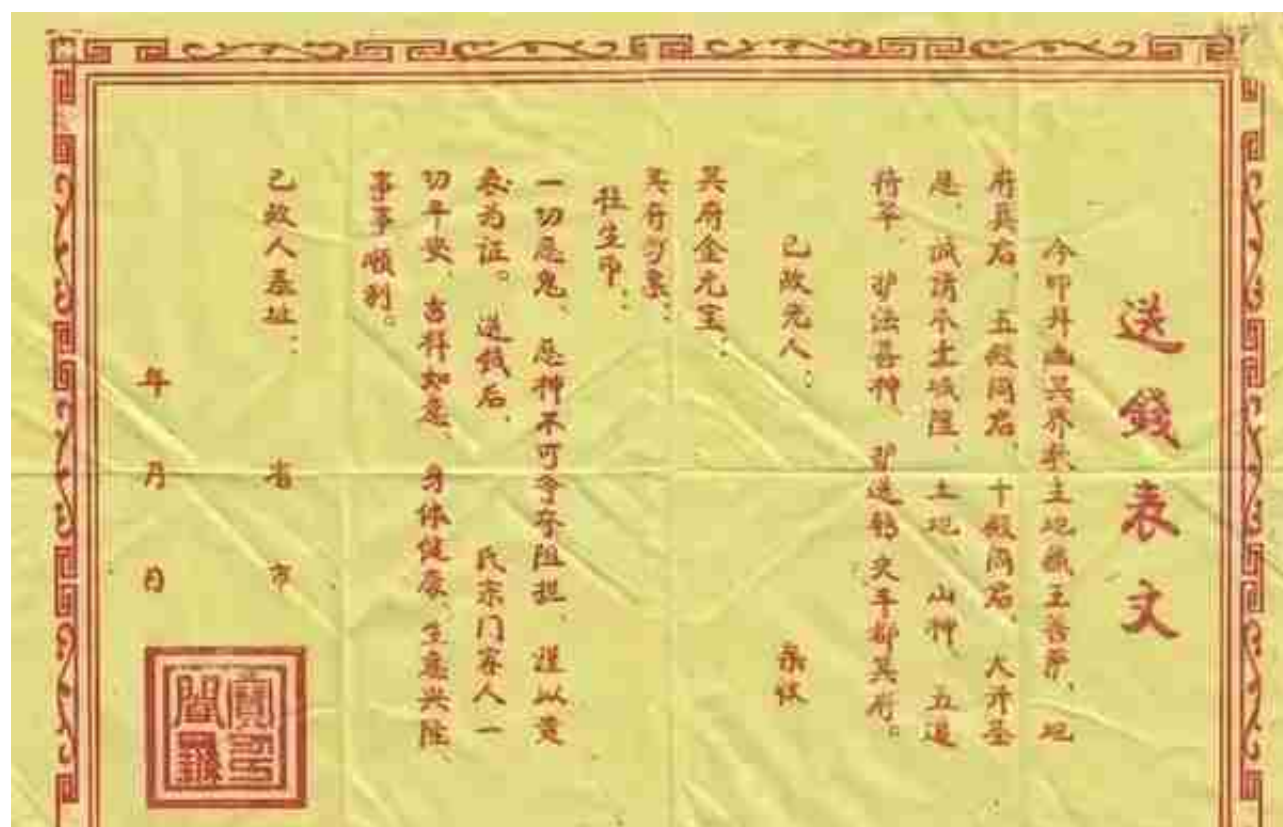 送錢表文
今叩拜幽冥界教主地藏王菩萨、地
府冥君、五殿阎君、十殿阎君、大开圣
恩、诚请水土城隍、土地、山神、五道
将军、护法善神、护送轿夫车都冥府。
已故先人： 亲收
冥府金元宝：
冥府钞票：
往生币：
一切恶鬼、恶神不可争夺阻拦、谨以黄
表为证。送钱后、 氏宗门家人一
切平安、吉祥如意、身体健康、生意兴隆、
事事顺利。
已故人墓址： 省 市
年 月 日
寶印
閻羅